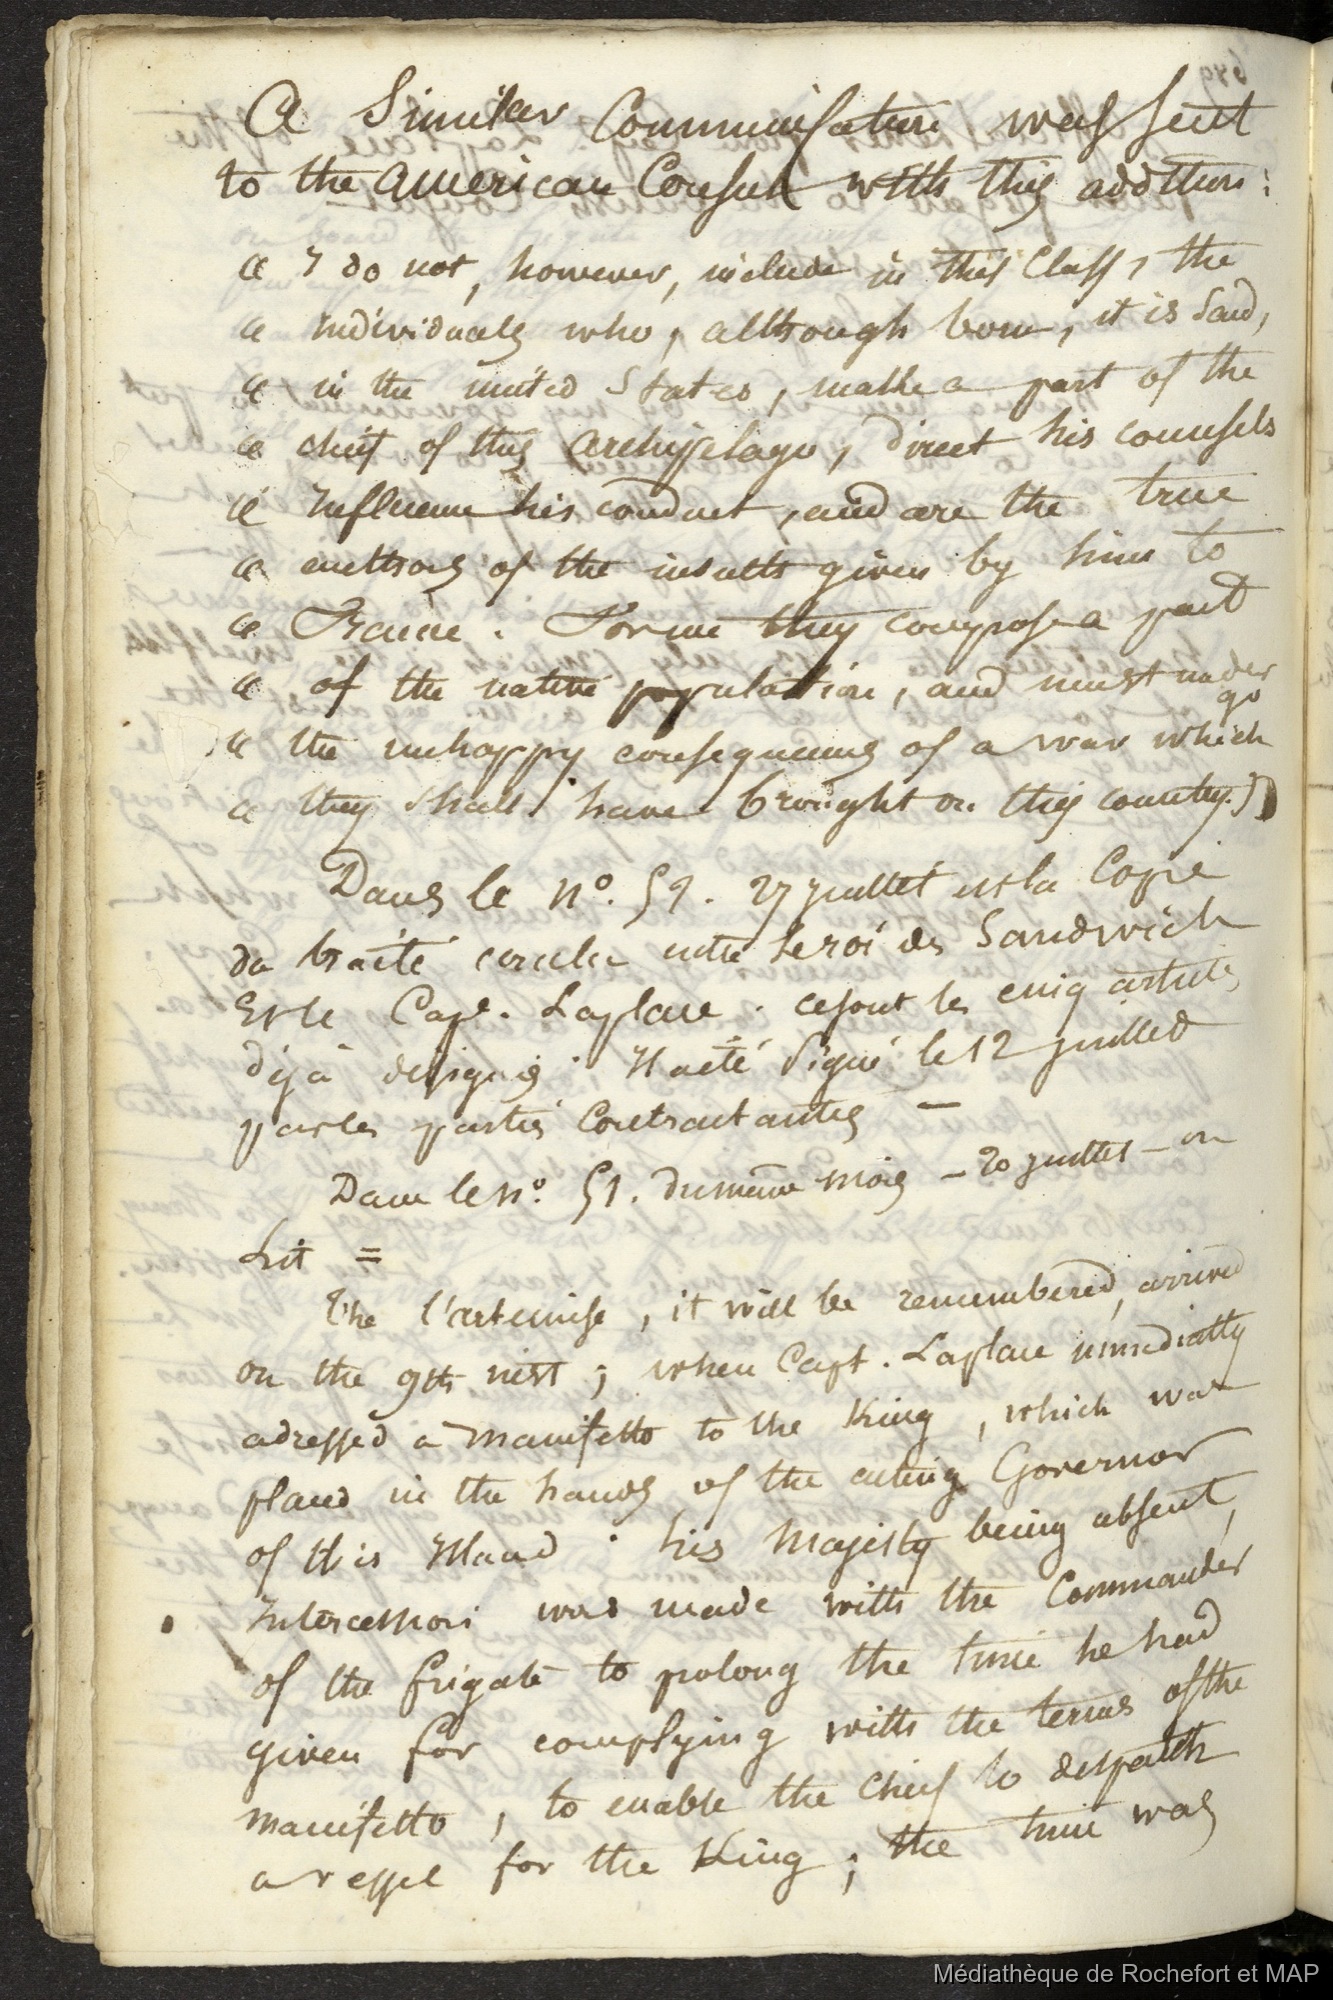 A Similar Communication was sent
to the American Consul with this addition:
« I do not, however, include in this Class, the
« individuals who, although born, it is Said,
« in the united States, make a part of the
« chief of this Archipelago, direct his counsels
« Influence his conduct, and are the true
« authors of the insults given by him to
« France. For me they compose a part
« of the native population, and must under
go
« the unhappy consequences of a war which
« they shall have brought on this country.)
Dans le n°. 52. 27 juillet est la Copie
du traité conclu entre le roi des Sandwich
Et le Cape. Laplace. ce sont les cinq articles
déjà désignés. Traité Signé le 12 juillet
par les parties Contractantes —
Dans le n°. 51. du même mois — 20 juillet — on
Lit =
The l'artemise, it will be remembered, arrived
on the 9th inst; when Capt. Laplace immediatly
adressed a Manifesto to the King, which was
placed in the hands of the acting Governor
of this Island. his Majesty being absent,
Intercession was made with the Commander
of the frigate to prolong the time he had
given for complying with the terms of the
Manifesto, to enable the Chief to despatch
a vessel for the King; the time was
Médiathèque de Rochefort et MAP